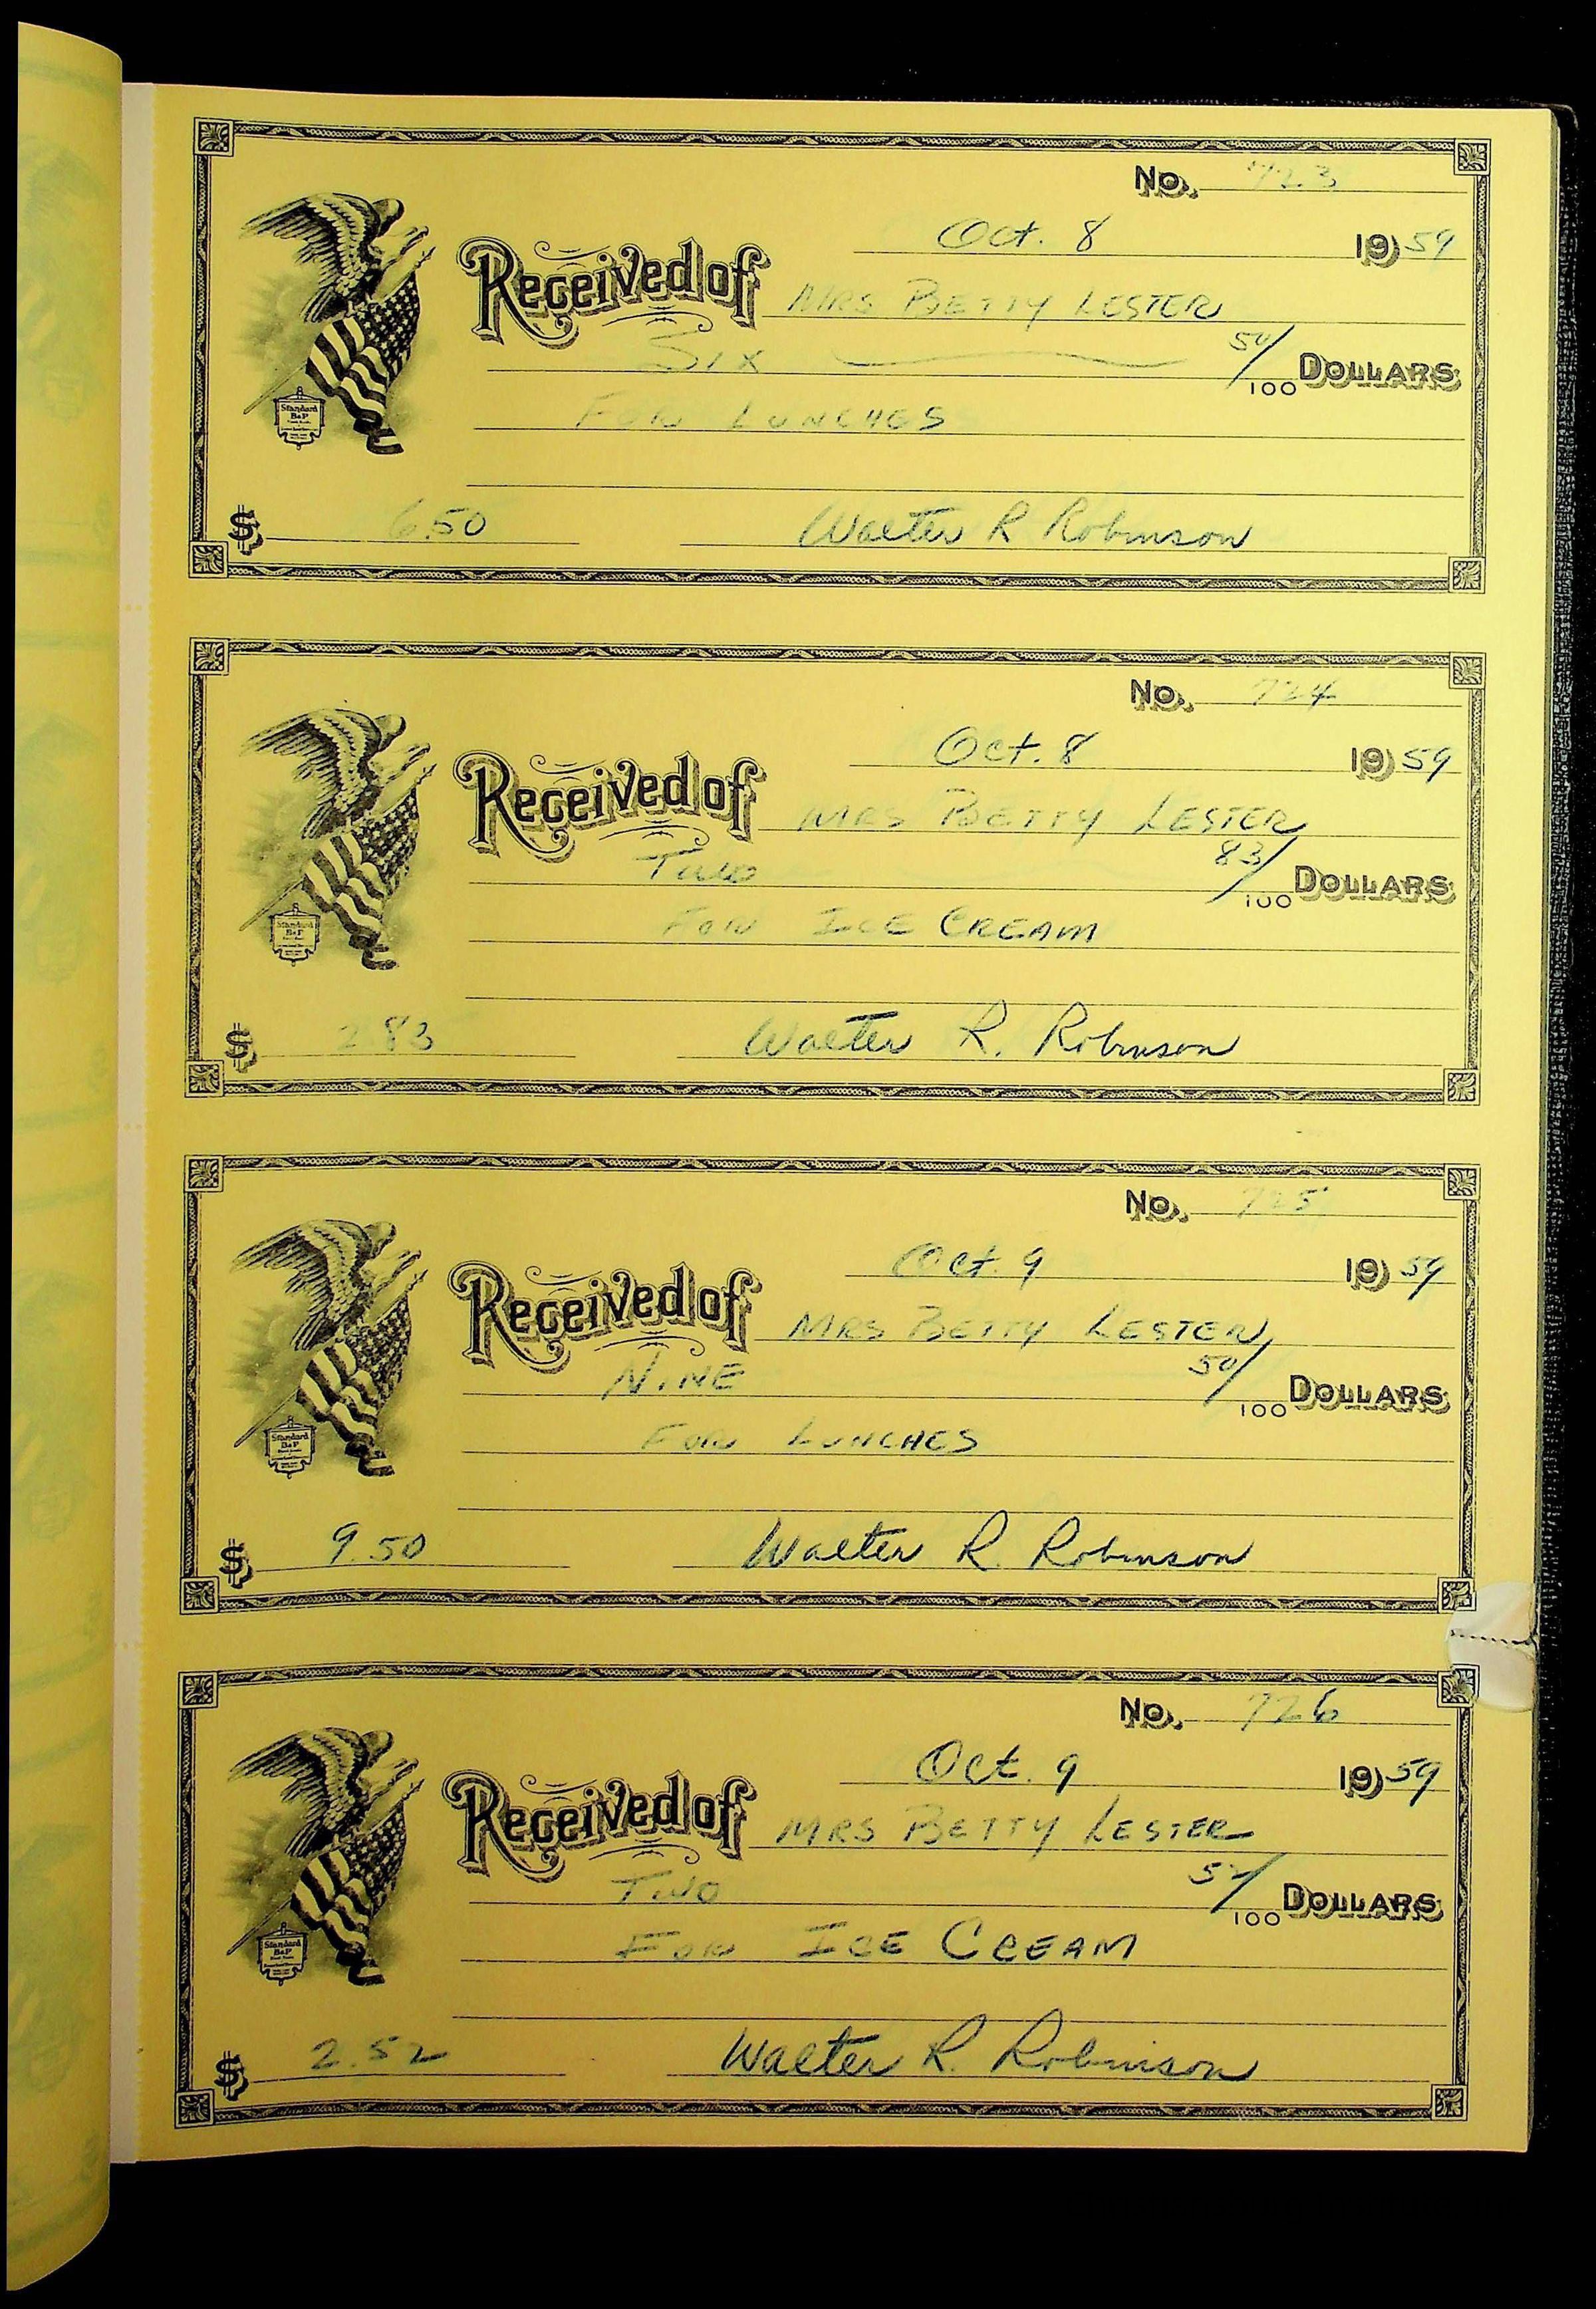 No. 723
Oct. 8 1959
Received of MRS BETTY LESTER
SIX 50/100 DOLLARS
FOR LUNCHES
Standard
B&P
$ 6.50 Walter R Robinson
No. 724
Oct. 8 1959
Received of MRS BETTY LESTER
TWO 83/100 DOLLARS
FOR ICE CREAM
Standard
B&P
$ 2.83 Walter R. Robinson
No. 725
Oct. 9 1959
Received of MRS BETTY LESTER
NINE 50/100 DOLLARS
FOR LUNCHES
Standard
B&P
$ 9.50 Walter R. Robinson
No. 726
Oct. 9 1959
Received of MRS BETTY LESTER
TWO 52/100 DOLLARS
FOR ICE CREAM
Standard
B&P
$ 2.52 Walter R. Robinson